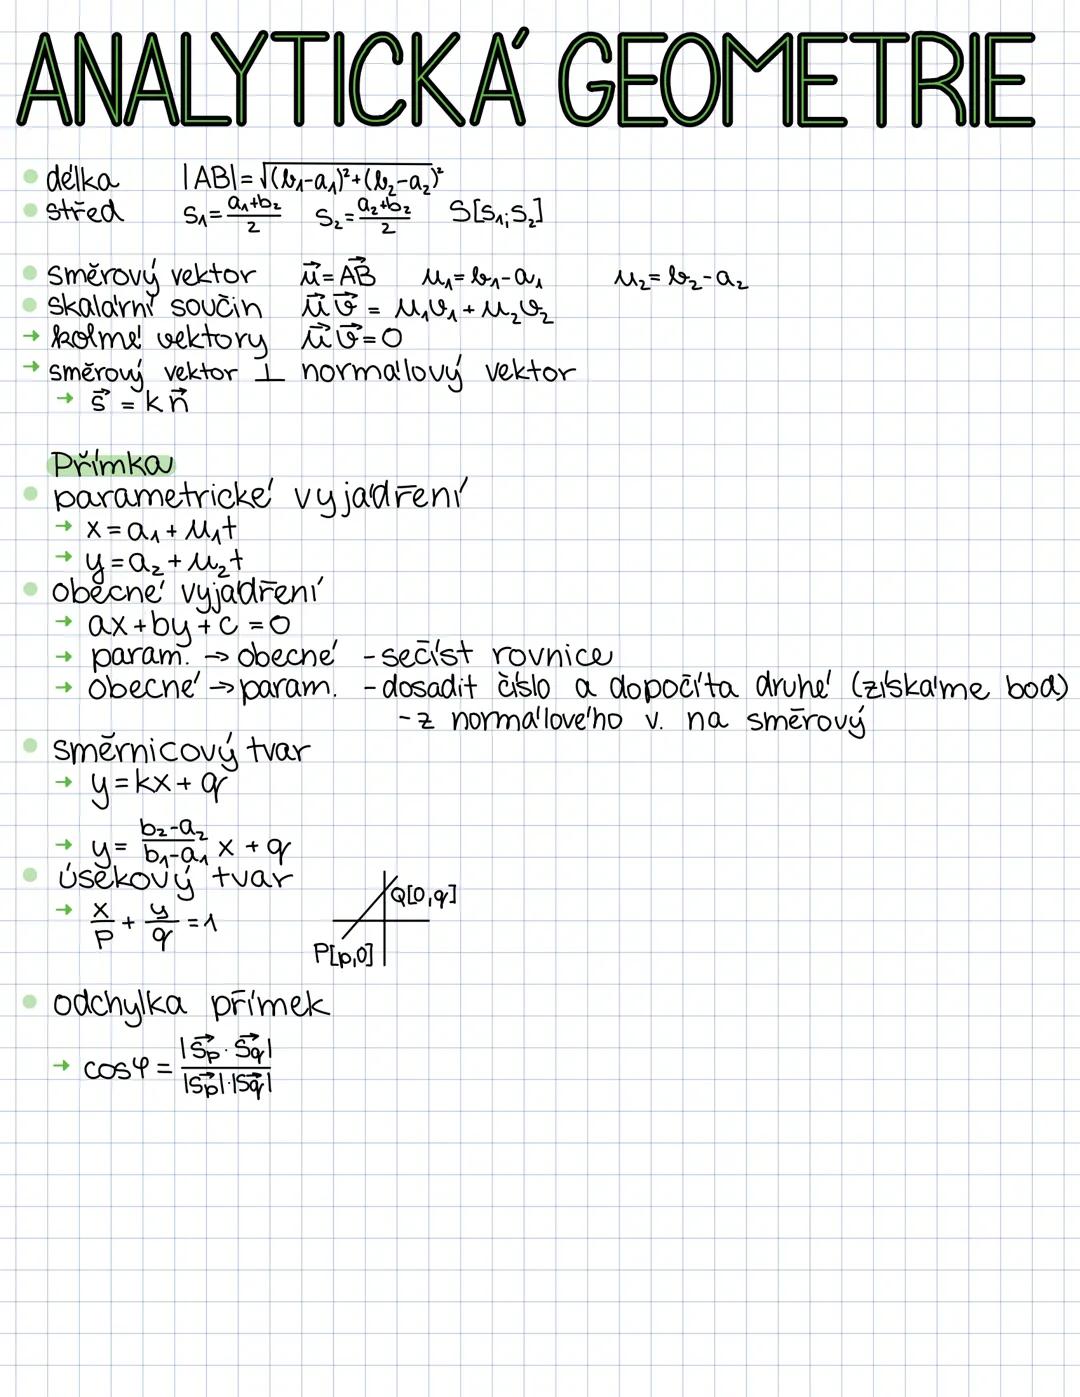 ANALYTICKÁ GEOMETRIE
• délka |AB|=√(b₁-a₁)²+(b₂-a₂)²
• střed S₁=a₁+b₂/2 S₂=a₂+b₂/2 S[S₁;S₂]
• směrový vektor u⃗=AB⃗ u₁=b₁-a₁ u₂=b₂-a₂
• skalární součin u⃗v⃗=u₁v₁+u₂v₂
→ kolmé vektory u⃗v⃗=0
→ směrový vektor ⊥ normálový vektor
→ s⃗=kn⃗
Přímka
• parametrické vyjádření
→ x=a₁+u₁t
→ y=a₂+u₂t
• obecné vyjádření
→ ax+by+c=0
→ param. → obecné - sečíst rovnice
→ obecné → param. - dosadit číslo a dopočíta druhé (získáme bod)
- z normálového v. na směrový
• směrnicový tvar
→ y=kx+q
→ y=b₂-a₂/b₁-a₁ x+q
• úsekový tvar
→ x/p+y/q=1
Q[0,q]
P[p,0]
• odchylka přímek
→ cosφ=|S⃗p·S⃗q|/|S⃗p|·|S⃗q|